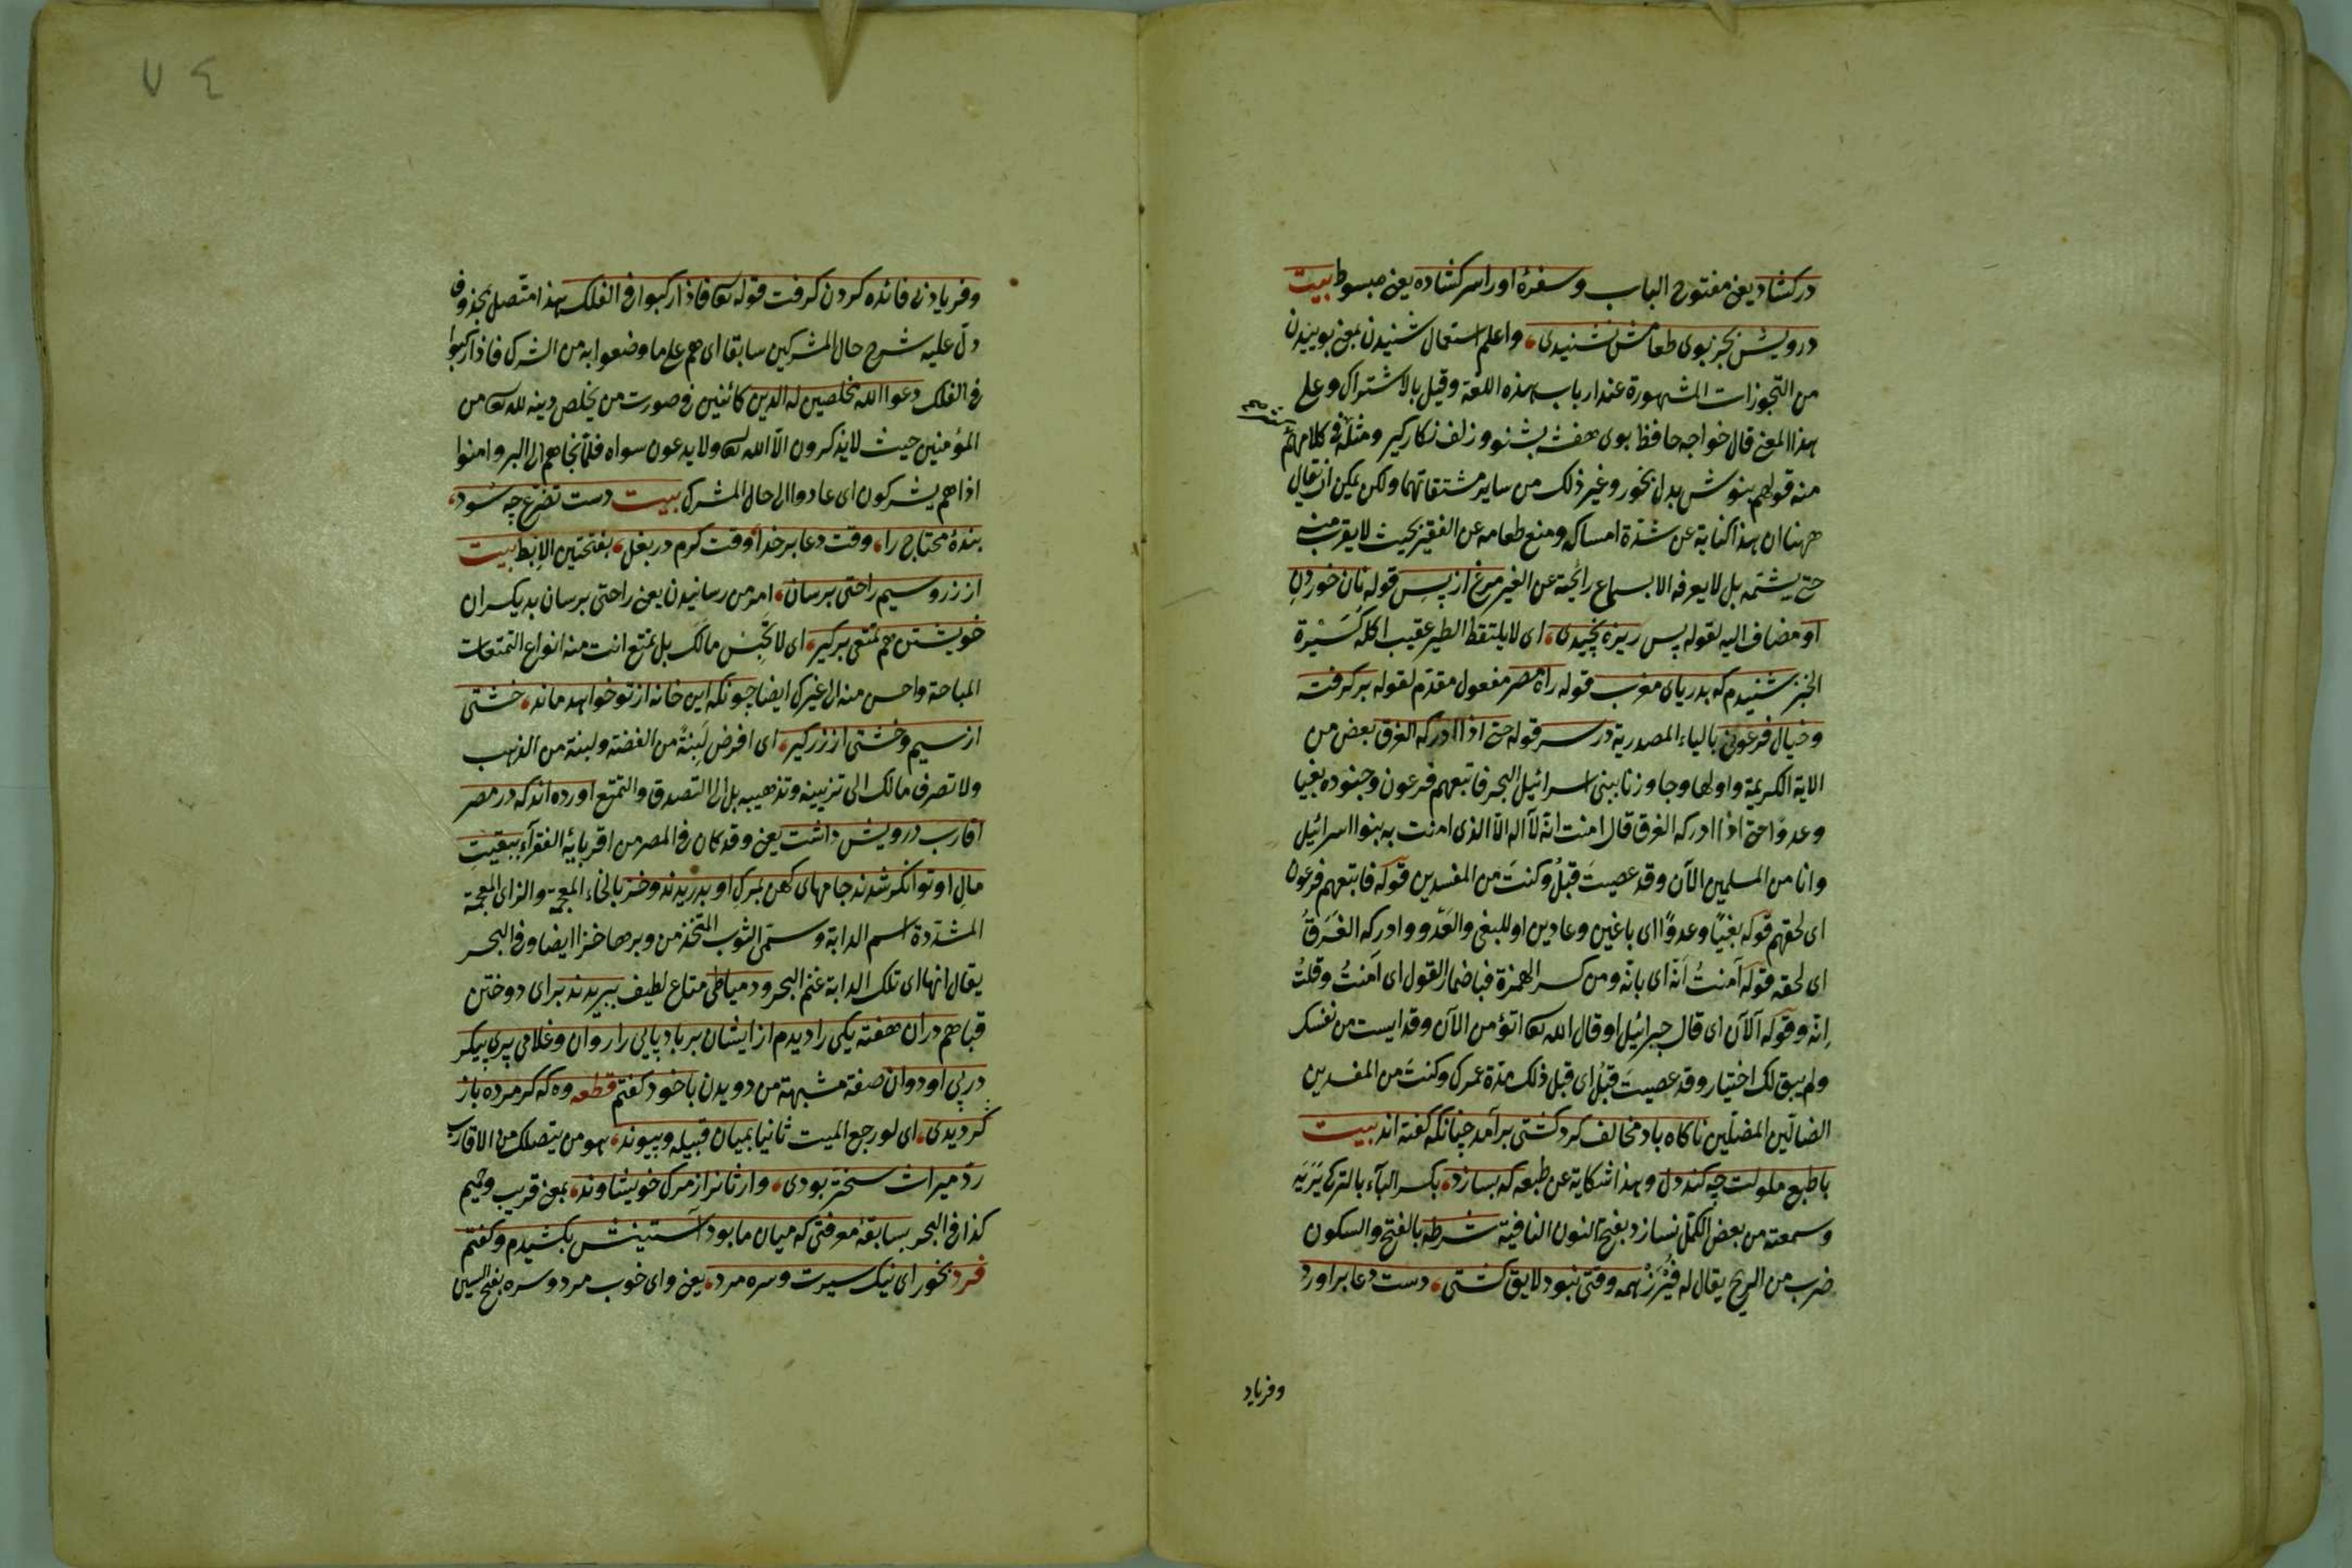 در كشاد يعنى مفتوح الباب وسفرۀ اورا سر كشاده يعنى مبسوط بيت
درويش بجز بوى طعامش نشنيدى، واعلم استعمال شنيدن بمعنى بوييدن
من التجوزات المشهورة عند ارباب هذه اللغة وقيل بالاشتراك وعلى
هذا المعنى قال خواجه حافظ بوى بنفشه بشنو وزلف نكار كير ومثله فى كلامهم
منه قولهم بنوش بدل بخور وغير ذلك من ساير مشتقاتهما ولكن يمكن ان يقال
ههنا ان هذا كناية عن شدّة امساكه ومنع طعامه عن الفقير بحيث لا يقرب منه
حتى يشتمه بل لا يعرفه الا بسماع رائحة عن الغير مرغ از پس قوله نان خوردن
او مضاف اليه لقوله پس ريزه نچيدى، اى لا يلتقط الطير عقيب اكله كسيرة
الخبز شنيدم كه بدرياى مغرب قوله راه مصر مفعول مقدّم لقوله بر كرفته
وخيال فرعونى بالياء المصدرية در سر قوله حتى اذا ادركه الغرق بعض من
الاية الكريمة واولها وجاوزنا ببنى اسرائيل البحر فاتبعهم فرعون وجنوده بغيا
وعدوّا حتى اذا ادركه الغرق قال امنت انّه لآ اله الّا الذى امنت به بنوا اسرائيل
وانا من المسلمين الآن وقد عصيتَ قبلُ وكنتَ من المفسدين قوله فاتبعهم فرعون
اى لحقهم قوله بغيًا وعدوًا اى باغين وعادين او للبغى والعَدْو وادركه الغَرَقُ
اى لحقه قوله آمنتُ أنّه اى بانّه ومن كسر الهمزة فباضمار القول اى آمنتُ وقلتُ
اِنّه وقوله آلآن اى قال جبرائيل او قال الله تعا اتؤمن الآن وقد ايست من نفسك
ولم يبق لك اختيار وقد عصيتَ قبلُ اى قبل ذلك مدّة عمرك وكنتَ من المفسدين
الضالّين المضلّين ناكاه باد مخالف كرد كشتى برآمد چنانكه كفته اند بيت
با طبع ملولت چه كند دل وهذا شكاية عن طبعه كه بسازد، بكسر البآء بالتركى
وسمعته من بعض الكمّل نسازد بفتح النون النافية شرطه بالفتح والسكون
ضرب من الريح يقال له همه وقتى نبود لايق كشتى، دست دعا براورد
وفرياد
٧٤
وفرياد بى فائده كردن كرفت قوله تعا فاذا ركبوا فى الفلك هذا متصل بمحذوف
دلّ عليه شرح حال المشركين سابقا اى هم على ما وضعوا به من الشرك فاذا ركبوا
فى الفلك دعوا الله مخلصين له الدين كائنين فى صورت من يخلص دينه لله تعا من
المؤمنين حيث لا يذكرون الّا الله تعا ولا يدعون سواه فلمّا نجاهم الى البر وامنوا
اذا هم يشركون اى عادوا الى حال المشرك بيت دست تضرّع چه سود،
بندۀ محتاج را، وقت دعا بر خدا، وقت كرم در بغل، بفتحتين الابط بيت
از زر وسيم راحتى برسان، امر من رسانيدن يعنى راحتى برسان بديكران
خويشتن هم تمتعى بر كير، اى لا تحبس مالك بل تمتع انت منه انواع التمتعات
المباحة واحسن منه الى غيرك ايضا چونكه اين خانه از تو خواهد ماند، خشتى
از سيم وخشتى از زر كير، اى افرض لَبِنَةً من الفضة ولبنة من الذهب
ولا تصرف مالك الى تزيينه وتذهيبه بل الى التصدق والتمتع اورده اند كه در مصر
اقارب درويش داشت يعنى وقد كان فى المصر من اقربائه الفقرآء ببقيت
مال او توانكر شدند جامهاى كهن بمرك او بدريدند وخز بالخاء المعجمة والزاى المعجمة
المشدّدة اسم الدابة وسمّى الثوب المتّخذ من وبرها خزا ايضا وفى البحر
يقال انها اى تلك الدابة غنم البحر ودمياطى متاع لطيف ببريدند براى دوختن
قبا هم دران هفته يكى را ديدم از ايشان بر باد پايى را روان وغلامى پرى پيكر
در پى او دوان صفة مشبهة من دويدن با خود كفتم قطعه وه كه كر مرده باز
كرديدى، اى لو رجع الميت ثانيا بميان قبيله وپيوند، هو من يتصلك من الاقارب
ردّ ميراث سختر بودى، وارثانرا از مرك خويشاوند، بمعنى قريب وحميم
كذا فى البحر بسابقۀ معرفتى كه ميان ما بود آستينش بكشيدم وكفتم
فرد بخور اى نيك سيرت وسره مرد، يعنى واى خوب مرد وسره بفتح السين